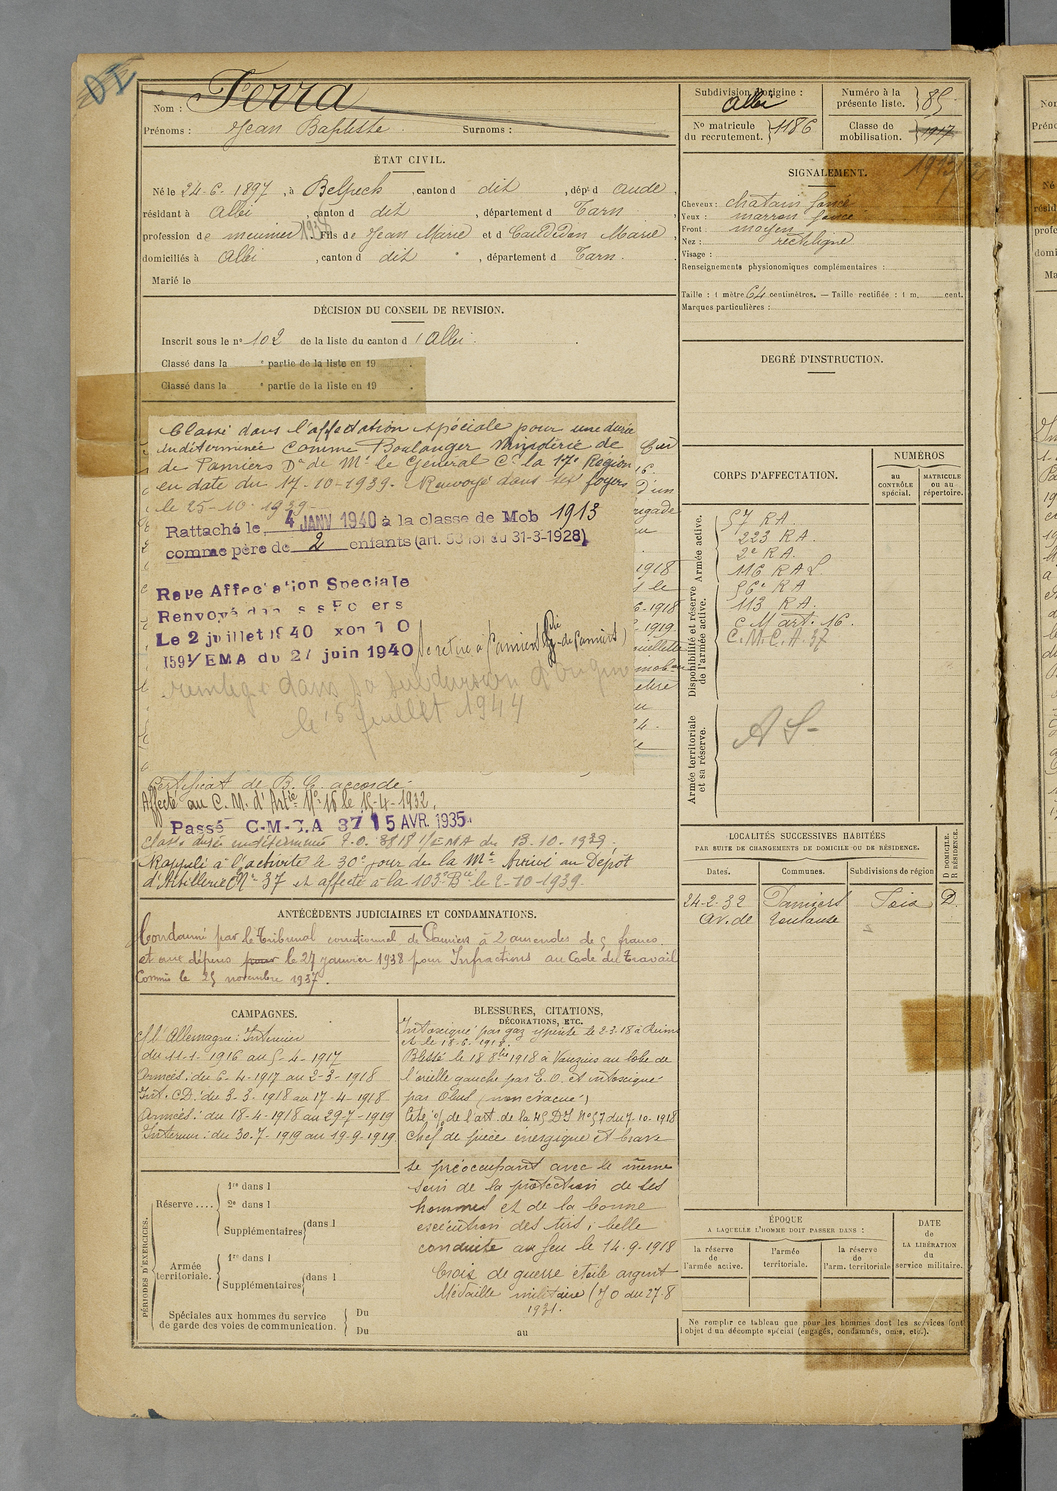 Nom : Ferra
Prénoms : Jean Baptiste Surnoms :
ÉTAT CIVIL.
Né le 24-6-1897, à Belpech, canton d dit, dépt d Aude,
résidant à Albi, canton d dit, département d Tarn,
profession de meunier 1938, fils de Jean Marie et d Caudedon Marie,
domiciliés à Albi, canton d dit, département d Tarn.
Marié le
DÉCISION DU CONSEIL DE REVISION.
Inscrit sous le n° 102 de la liste du canton d'Albi.
Classé dans la e partie de la liste en 19 .
Classé dans la e partie de la liste en 19 .
Classé dans l'affectation spéciale pour une durée
indéterminée comme Boulanger Minoterie de
de Pamiers Dn de Mr le Général Ct la 17e Région
en date du 17-10-1939. Renvoyé dans ses foyers
le 25-10-1939
Rattaché le 4 JANV 1940 à la classe de Mob 1913
comme père de 2 enfants (art. 58 loi du 31-3-1928)
Raye Affectation Speciale
Renvoyé dans ses Foyers
Le 2 juillet 1940
1591/EMA du 27 juin 1940 se retire à Pamiers
réintégré dans sa subdivision d'origine
le 5 Juillet 1944
Certificat de B. C. accordé
Affecté au C. M. d'Artie No 16 le 15-4-1932.
Passé C-M-C.A 37 15 AVR. 1935
Classé durée indéterminée 8818 1/EMA du 13.10.1939.
Rappelé à l'activité le 30e jour de la Mon Arrivé au Dépôt
d'Artillerie No 37 et affecté à la 103e Bie le 2-10-1939.
ANTÉCÉDENTS JUDICIAIRES ET CONDAMNATIONS.
Condamné par le Tribunal correctionnel de Pamiers à 2 amendes de 5 francs
et aux dépens pour le 27 janvier 1938 pour Infractions au Code du Travail
Commis le 25 novembre 1937.
CAMPAGNES.
Ct l'Allemagne : Intérieur
du 11-1-1916 au 5-4-1917
Armées : du 6-4-1917 au 2-3-1918
Int. CD : du 3-3-1918 au 17-4-1918
Armées : du 18-4-1918 au 29-7-1919
Intérieur : du 30-7-1919 au 19-9-1919
BLESSURES, CITATIONS,
DÉCORATIONS, ETC.
Intoxiqué par gaz ypérite le 2-3-18 à Reims
et le 18-6-1918.
Blessé le 18 8bre 1918 à Vouziers au lobe de
l'oreille gauche par E. O. et intoxiqué
par Obus (non évacué)
Cité o/ de l'art. de la 45 DI No 57 du 7-10-1918
Chef de pièce énergique et brave
se préoccupant avec le même
soin de la protection de ses
hommes et de la bonne
exécution des tirs, belle
conduite au feu le 14-9-1918
Croix de guerre étoile argent
Médaille militaire (JO du 27-8
1931.
PÉRIODES D'EXERCICES.
Réserve....
1re dans l
2e dans l
Supplémentaires dans l
Armée territoriale.
1re dans l
Supplémentaires dans l
Spéciales aux hommes du service
de garde des voies de communication.
Du
Du au
Subdivision d'origine :
Albi
Numéro à la
présente liste. 85
No matricule
du recrutement. 1186
Classe de
mobilisation. 1917
1913
SIGNALEMENT.
Cheveux : chatain foncé
Yeux : marron foncé
Front : moyen
Nez : rectiligne
Visage :
Renseignements physionomiques complémentaires :
Taille : 1 mètre 64 centimètres. — Taille rectifiée : 1 m. cent.
Marques particulières :
DEGRÉ D'INSTRUCTION.
CORPS D'AFFECTATION.
NUMÉROS
au
CONTRÔLE
spécial.
MATRICULE
ou au
répertoire.
Armée active.
57 RA
223 RA.
2e RA.
116 RAL
Disponibilité et réserve
de l'armée active.
56e RA
113 RA.
C M art. 16.
C.M.C.A. 37
Armée territoriale
et sa réserve.
AS
LOCALITÉS SUCCESSIVES HABITÉES
PAR SUITE DE CHANGEMENTS DE DOMICILE OU DE RÉSIDENCE.
Dates. Communes. Subdivisions de région
D DOMICILE.
R RÉSIDENCE.
24-2-32 Pamiers Foix D.
Av. de Toulouse
ÉPOQUE
A LAQUELLE L'HOMME DOIT PASSER DANS :
la réserve
de
l'armée active.
l'armée
territoriale.
la réserve
de
l'arm. territoriale
DATE
de
LA LIBÉRATION
du
service militaire.
Ne remplir ce tableau que pour les hommes dont les services font
l'objet d'un décompte spécial (engagés, condamnés, omis, etc.).